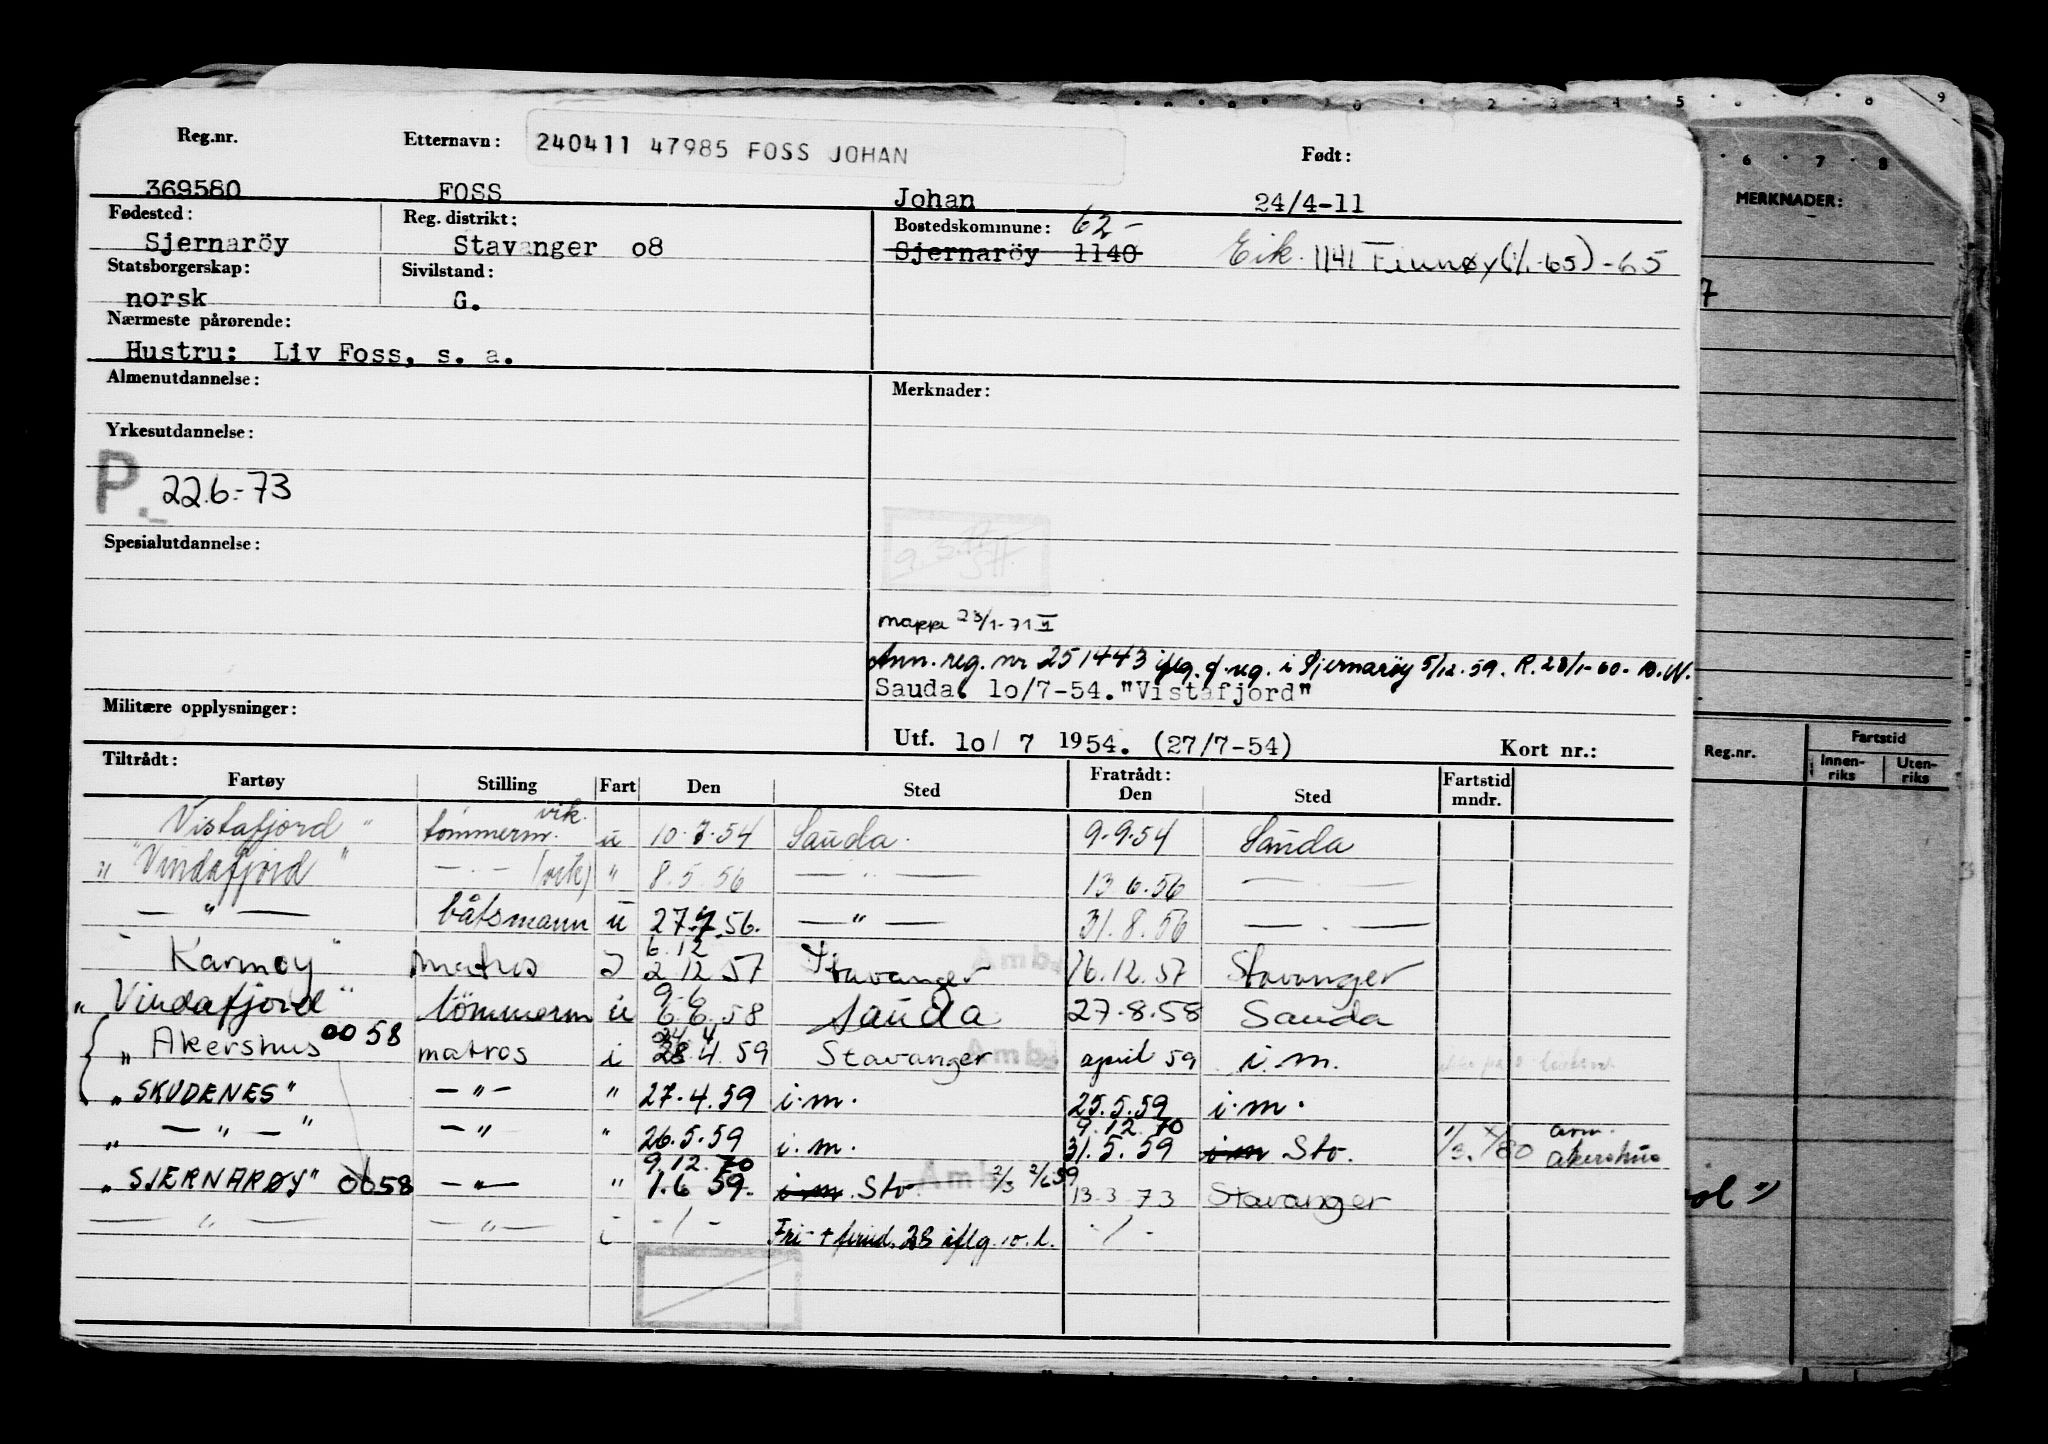 Reg.nr. Etternavn: 240411 47985 FOSS JOHAN Født:
369580 FOSS Johan 24/4-11
Fødested: Reg. distrikt: Bostedskommune: 62-
Sjernaröy Stavanger o8 Sjernaröy 1140 Eik. 1141 Finnøy (1/1-65) -65
Statsborgerskap: Sivilstand:
norsk G.
Nærmeste pårørende:
Hustru: Liv Foss, s. a.
Almenutdannelse: Merknader:
Yrkesutdannelse:
P. 22.6.-73
Spesialutdannelse:
mappe 23/1-71
Ann. reg. nr 251443 iflg. q. reg. i Sjernarøy 5/12.59. R. 28/1-60.
Sauda. 1o/7-54. "Vistafjord"
Militære opplysninger:
Utf. 1o/ 7 1954. (27/7-54) Kort nr.:
Tiltrådt: Fratrådt:
Fartøy Stilling Fart Den Sted Den Sted Fartstid mndr.
Vistafjord " tömmerm. vik. u 10.7.54 Sauda. 9.9.54 Sauda
" Vindafjord " — . — (vik) " 8.5.56 — " — 13.6.56 — . —
— " — båtsmann u 27.7.56. — " — 31.8.56 — . —
6.12
" Karmøy " matros I 2.12.57 Stavanger 16.12.57 Stavanger
9.6
" Vindafjord " tömmerm u 6.6.58 Sauda 27.8.58 Sauda
24 4
" Akershus 0058 matros i 28.4.59 Stavanger april 59 i.m.
" SKUDENES " — " — " 27.4.59 i.m. 25.5.59 i.m.
9.12.70
" — " — " — " " 26.5.59 i.m. 31.5.59 i m Stv. akershus
9.12.70
" SJERNARØY " 0058 — " — " 1.6 59. i m Stv 13.3.73 Stavanger
— " — — " — i - / - - / -
MERKNADER:
Reg.nr. Fartstid
Innen-riks Uten-riks